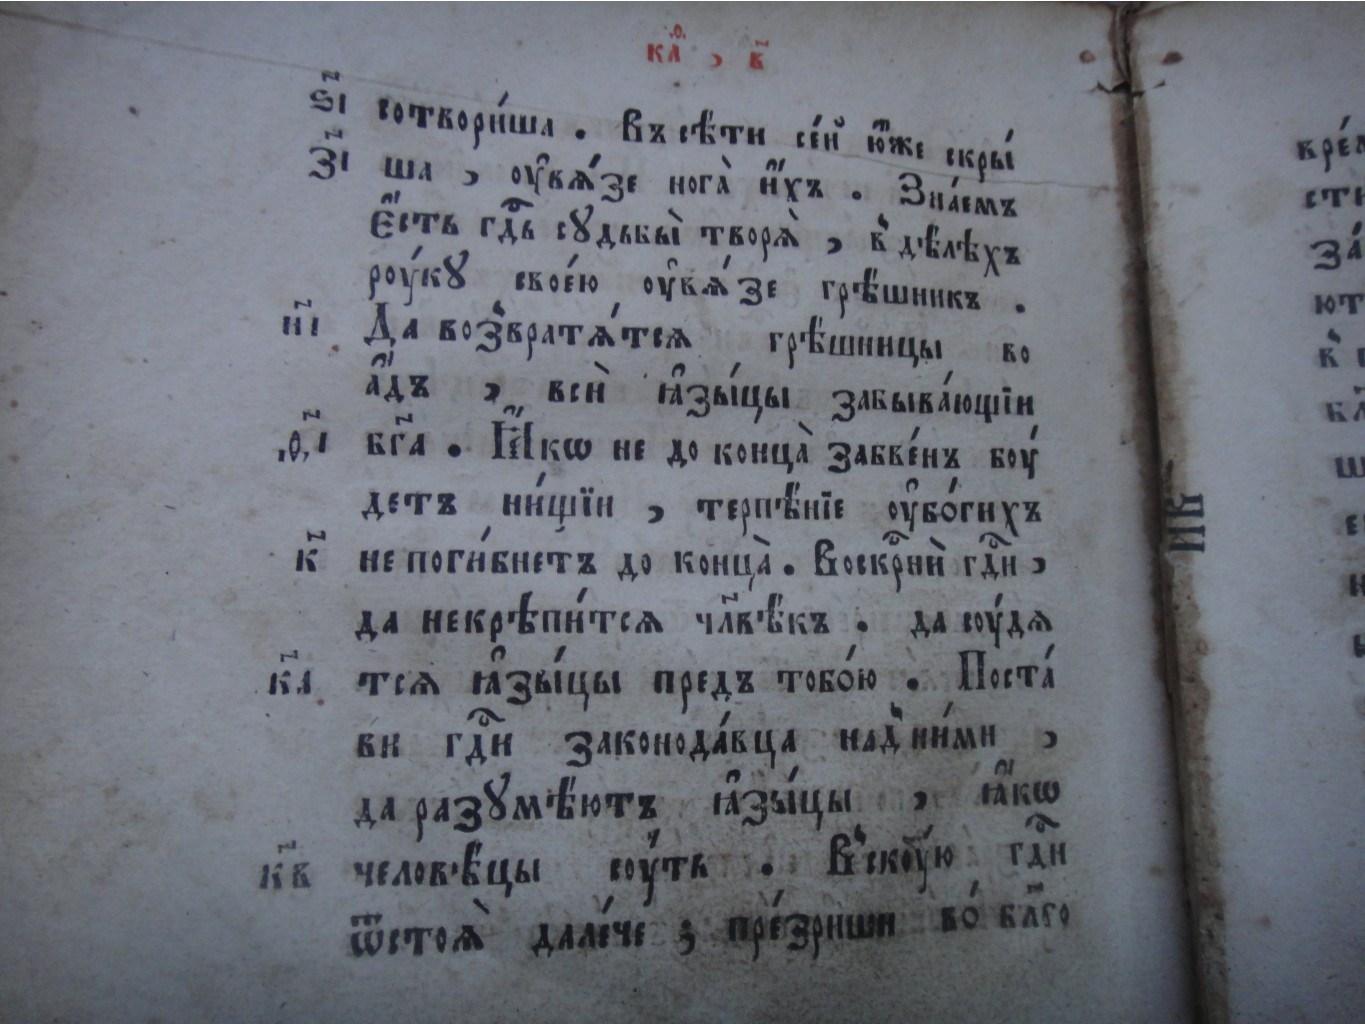 каѳ҇ , в҃
ѕ҃і сотвори́ша . Въ сѣ́ти се́й ю҆́же скры́
з҃і ша , ᲂу҆вѧ́зе нога̀ и҆́хъ . Зна́емъ
є҆́сть гдⷭ҇ь сꙋдьбы̀ творѧ̀ , в̾ дѣ́лѣхъ
роу́кꙋ свое́ю ᲂу҆вѧ́зе грѣ́шникъ .
и҃і Да воз̾вратѧ́тсѧ грѣ́шницы во
а҆́дъ , всѝ ꙗ҆зы́цы забыва́ющїи
ѳ҃і бг҃а . Ꙗ҆́кѡ не до конца̀ забве́нъ боу́
детъ ни́щїи , терпѣ́нїе ᲂу҆бо́гихъ
к҃ не поги́бнетъ до конца̀ . Воскрⷭ҇нѝ гдⷭ҇и ,
да некрѣпи́тсѧ чл҃вѣ́къ . да соу́дѧ
к҃а тсѧ ꙗ҆зы́цы предъ тобо́ю . Поста́
ви гдⷭ҇и законода́вца над̾ ни́ми ,
да разꙋмѣ́ютъ ꙗ҆зы́цы , ꙗ҆́кѡ
к҃в человѣ́цы соу́ть . В̾скоу́ю гдⷭ҇и
ѿстоѧ̀ дале́че ; пре́зриши во́ бл҃го